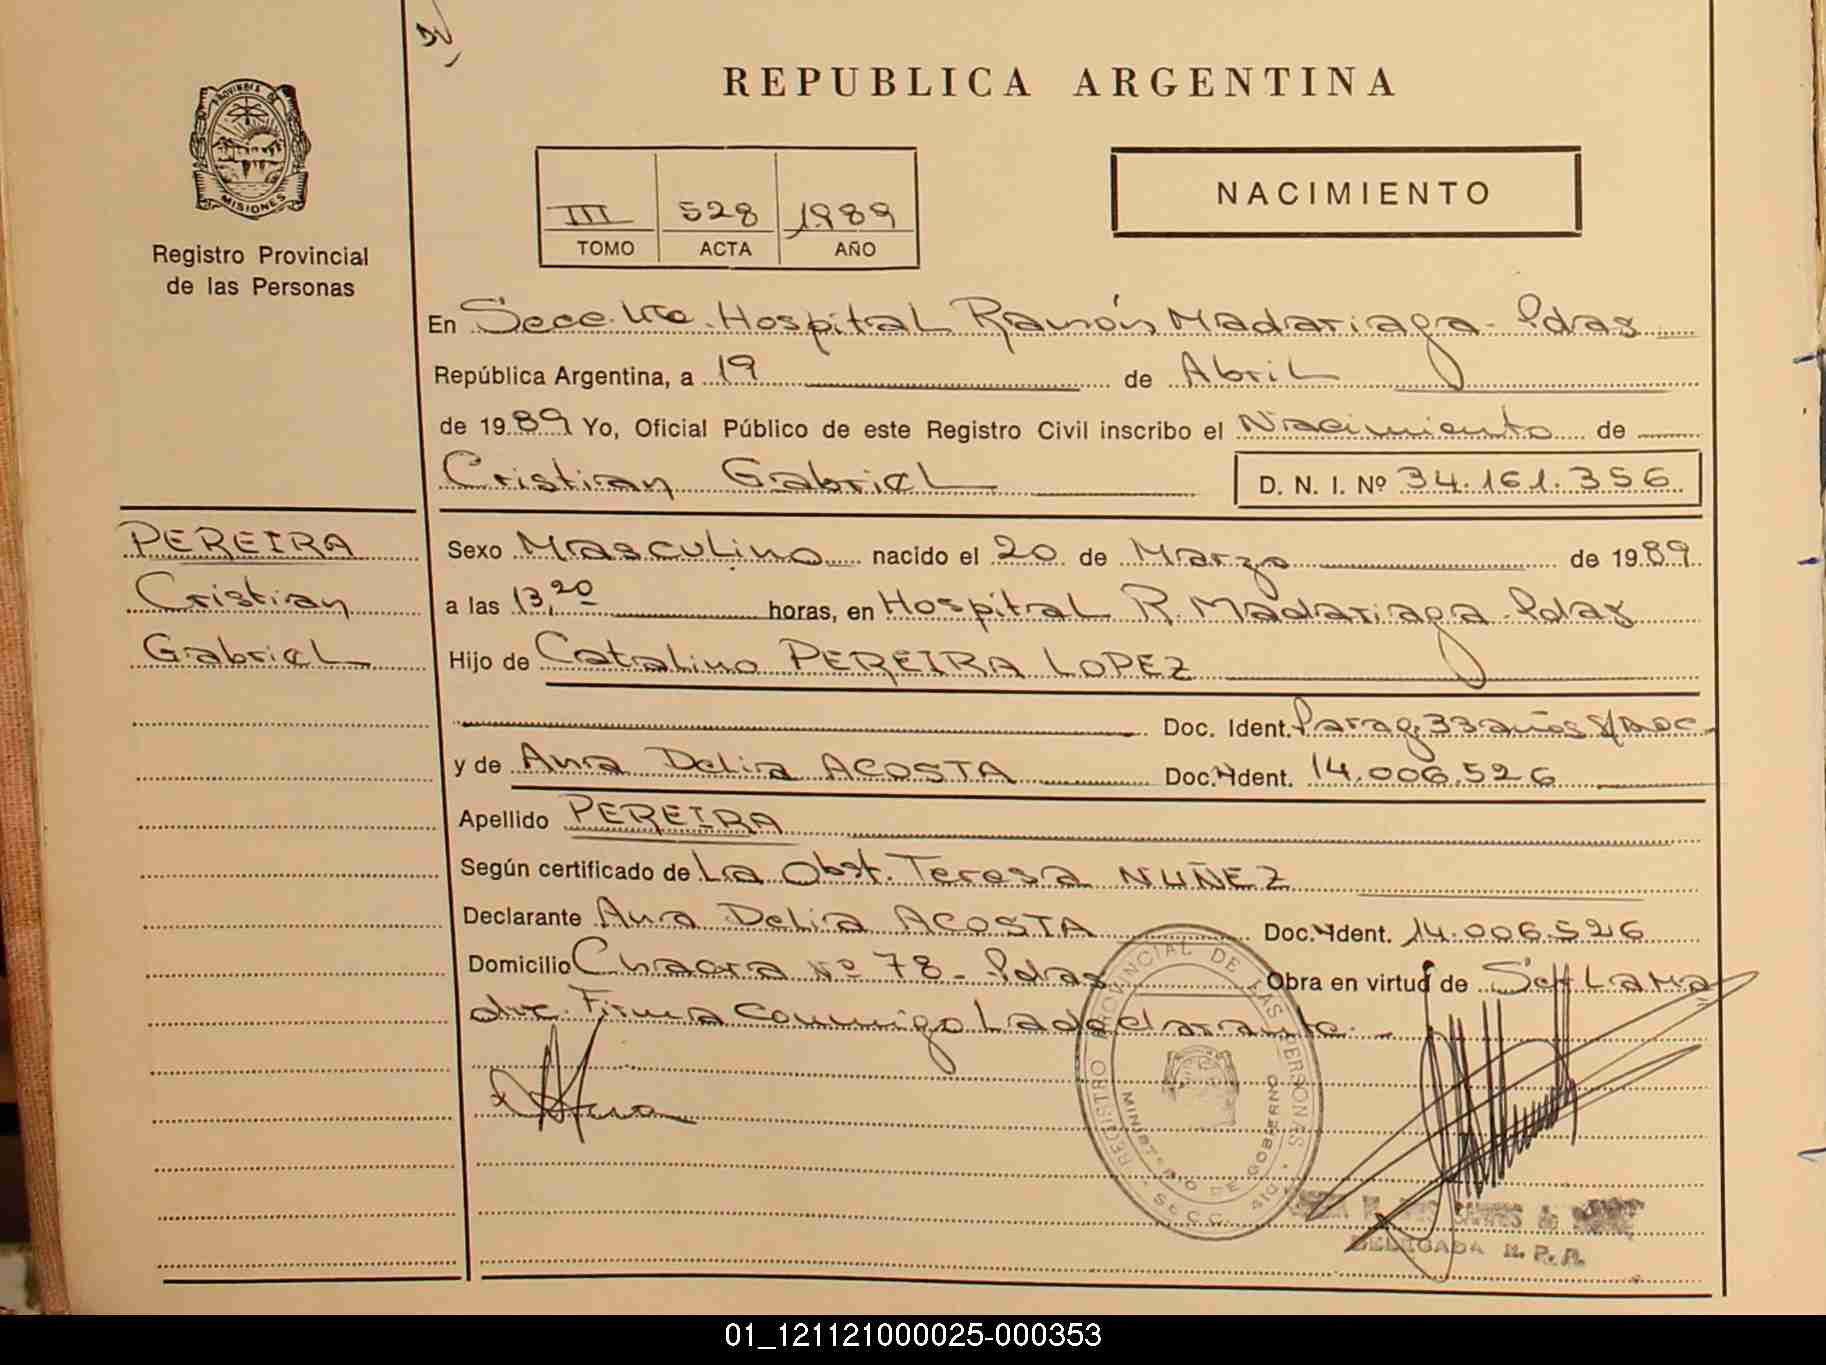 REPUBLICA ARGENTINA
PROVINCIA DE
MISIONES
Registro Provincial
de las Personas
III 528 1989
TOMO ACTA AÑO
NACIMIENTO
En Secc. Hospital Ramón Madariaga - Pdas
República Argentina, a 19 de Abril
de 1989 Yo, Oficial Público de este Registro Civil inscribo el Nacimiento de
Cristian Gabriel D. N. I. Nº 34.161.356
PEREIRA
Cristian
Gabriel
Sexo Masculino nacido el 20 de Marzo de 1989
a las 13,20 horas, en Hospital R. Madariaga - Pdas
Hijo de Catalino PEREIRA LOPEZ
Doc. Ident. Parag. 33 años S/Doc
y de Ana Delia ACOSTA Doc. Ident. 14.006.526
Apellido PEREIRA
Según certificado de La Obst. Teresa NUÑEZ
Declarante Ana Delia ACOSTA Doc. Ident. 14.006.526
Domicilio Chacra Nº 78 - Pdas Obra en virtud de Ser La Ma
dre. Firma Conmigo La declarante. -
REGISTRO PROVINCIAL DE LAS PERSONAS
MINISTERIO DE GOBIERNO
DELEGADA R. P. P.
01_121121000025-000353